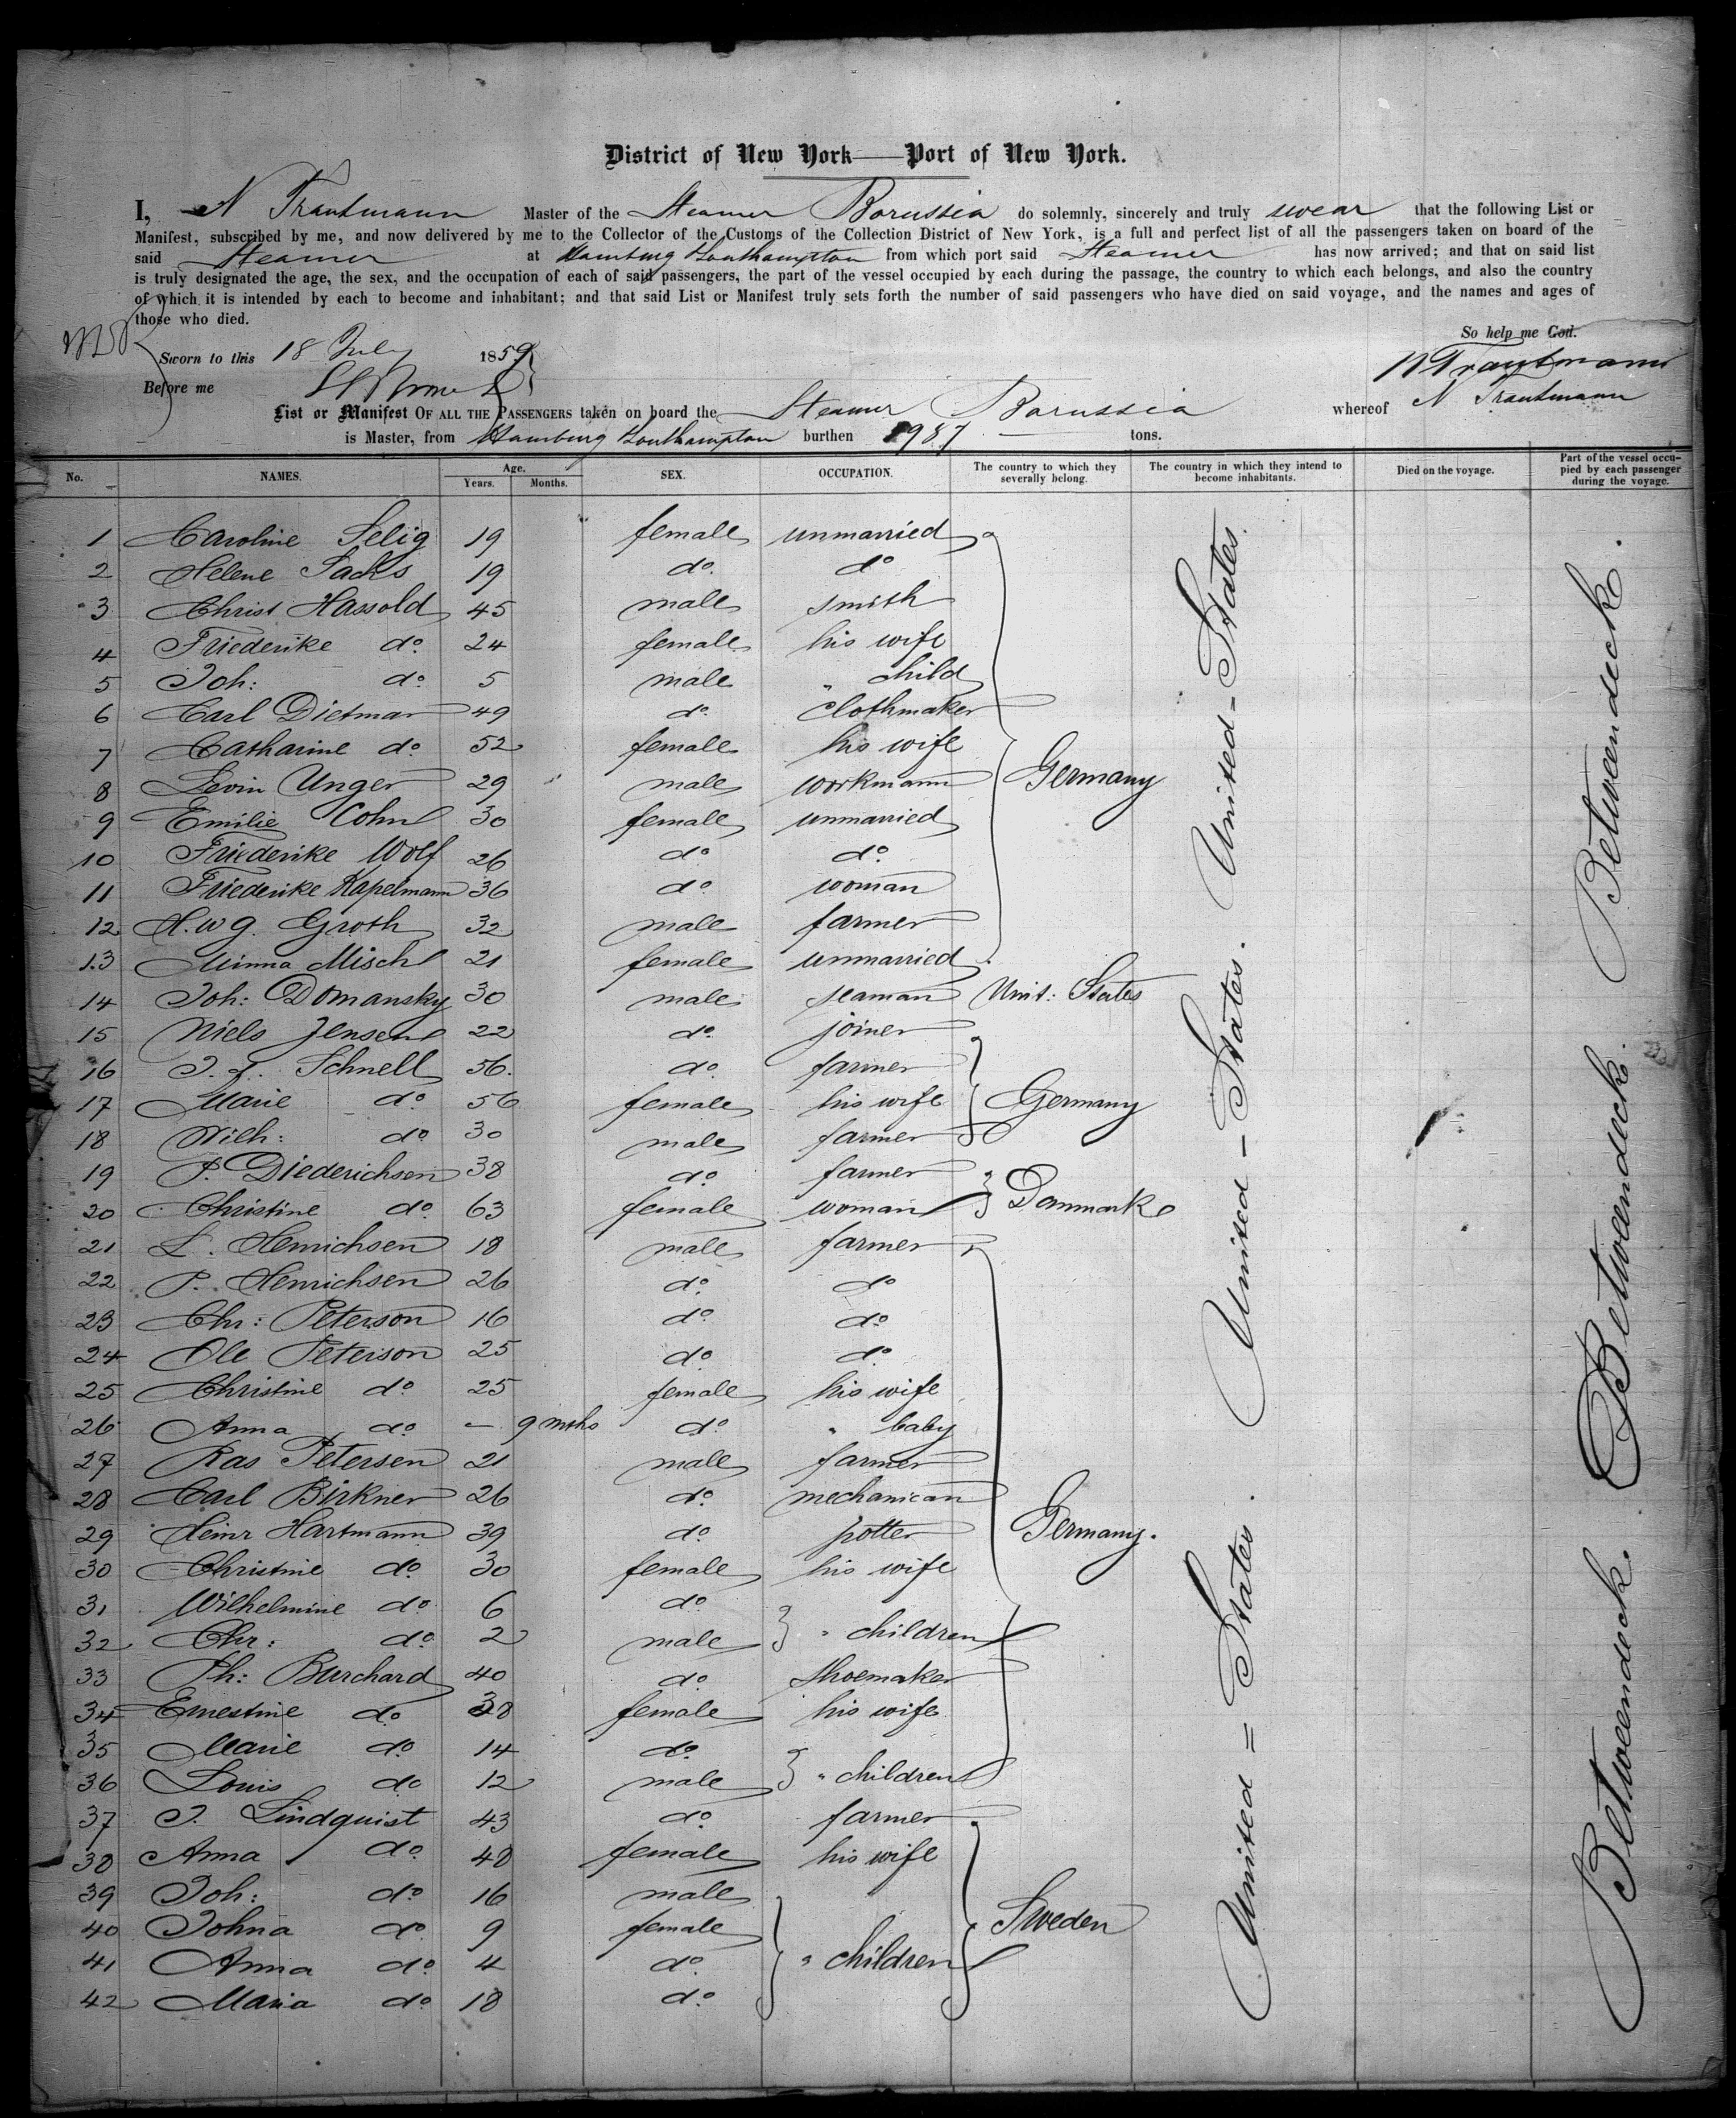 District of New York — Port of New York.
I, N Trautmann Master of the Steamer Borussia do solemnly, sincerely and truly swear that the following List or
Manifest, subscribed by me, and now delivered by me to the Collector of the Customs of the Collection District of New York, is a full and perfect list of all the passengers taken on board of the
said Steamer at Hamburg Southampton from which port said Steamer has now arrived; and that on said list
is truly designated the age, the sex, and the occupation of each of said passengers, the part of the vessel occupied by each during the passage, the country to which each belongs, and also the country
of which it is intended by each to become and inhabitant; and that said List or Manifest truly sets forth the number of said passengers who have died on said voyage, and the names and ages of
those who died.
So help me God.
Sworn to this 18 July 1859
N Trautmann
Before me
List or Manifest OF ALL THE PASSENGERS taken on board the Steamer Borussia whereof N Trautmann
is Master, from Hamburg Southampton burthen 1987 tons.
No. NAMES. Age. Years. Months. SEX. OCCUPATION. The country to which they severally belong. The country in which they intend to become inhabitants. Died on the voyage. Part of the vessel occupied by each passenger during the voyage.
1 Caroline Selig 19 female unmarried
2 Helene Sachs 19 do. do
3 Christ Hassold 45 male smith
4 Friederike do. 24 female his wife
5 Joh: do. 5 male " child
6 Carl Dietmar 49 do. clothmaker
7 Catharine do. 52 female his wife
8 Levin Unger 29 male workmann Germany
9 Emilie Cohn 30 female unmarried
10 Friederike Wolf 26 do do.
11 Friederike Kapelmann 36 do. woman
12 H. W G. Groth 32 male farmer
13 Minna Misch 21 female unmarried
14 Joh: Domansky 30 male seaman Unit: States
15 Niels Jensen 22 do. joiner
16 J. F. Schnell 56. do. farmer
17 Marie do. 56 female his wife Germany
18 Wilh: do 30 male farmer
19 P. Diederichsen 38 do. farmer
20 Christine do. 63 female woman Danmark
21 L. Henrichsen 18 male farmer
22 P. Henrichsen 26 do. do
23 Chr: Peterson 16 do. do.
24 Ole Peterson 25 do. do.
25 Christine do 25 female his wife
26 Anna do. — 9 mths do. " baby
27 Ras Petersen 21 male farmer
28 Carl Birkner 26 do. mechanican
29 Heinr Hartmann 39 do. potter Germany.
30 Christine do. 30 female his wife
31 Wilhelmine do. 6 do.
32 Chr: do. 2 male " children
33 Ph: Burchard 40 do. shoemaker
34 Ernestine do. 38 female his wife
35 Marie do. 14 do.
36 Louis do 12 male " children
37 J. Lindquist 43 do. farmer
38 Anna do. 48 female his wife
39 Joh: do. 16 male
40 Johna do. 9 female Sweden
41 Anna do. 4 do. " children
42 Maria do. 18 do.
United - States.
United - States.
United = States.
Betweendeck.
Betweendeck.
Betweendeck.